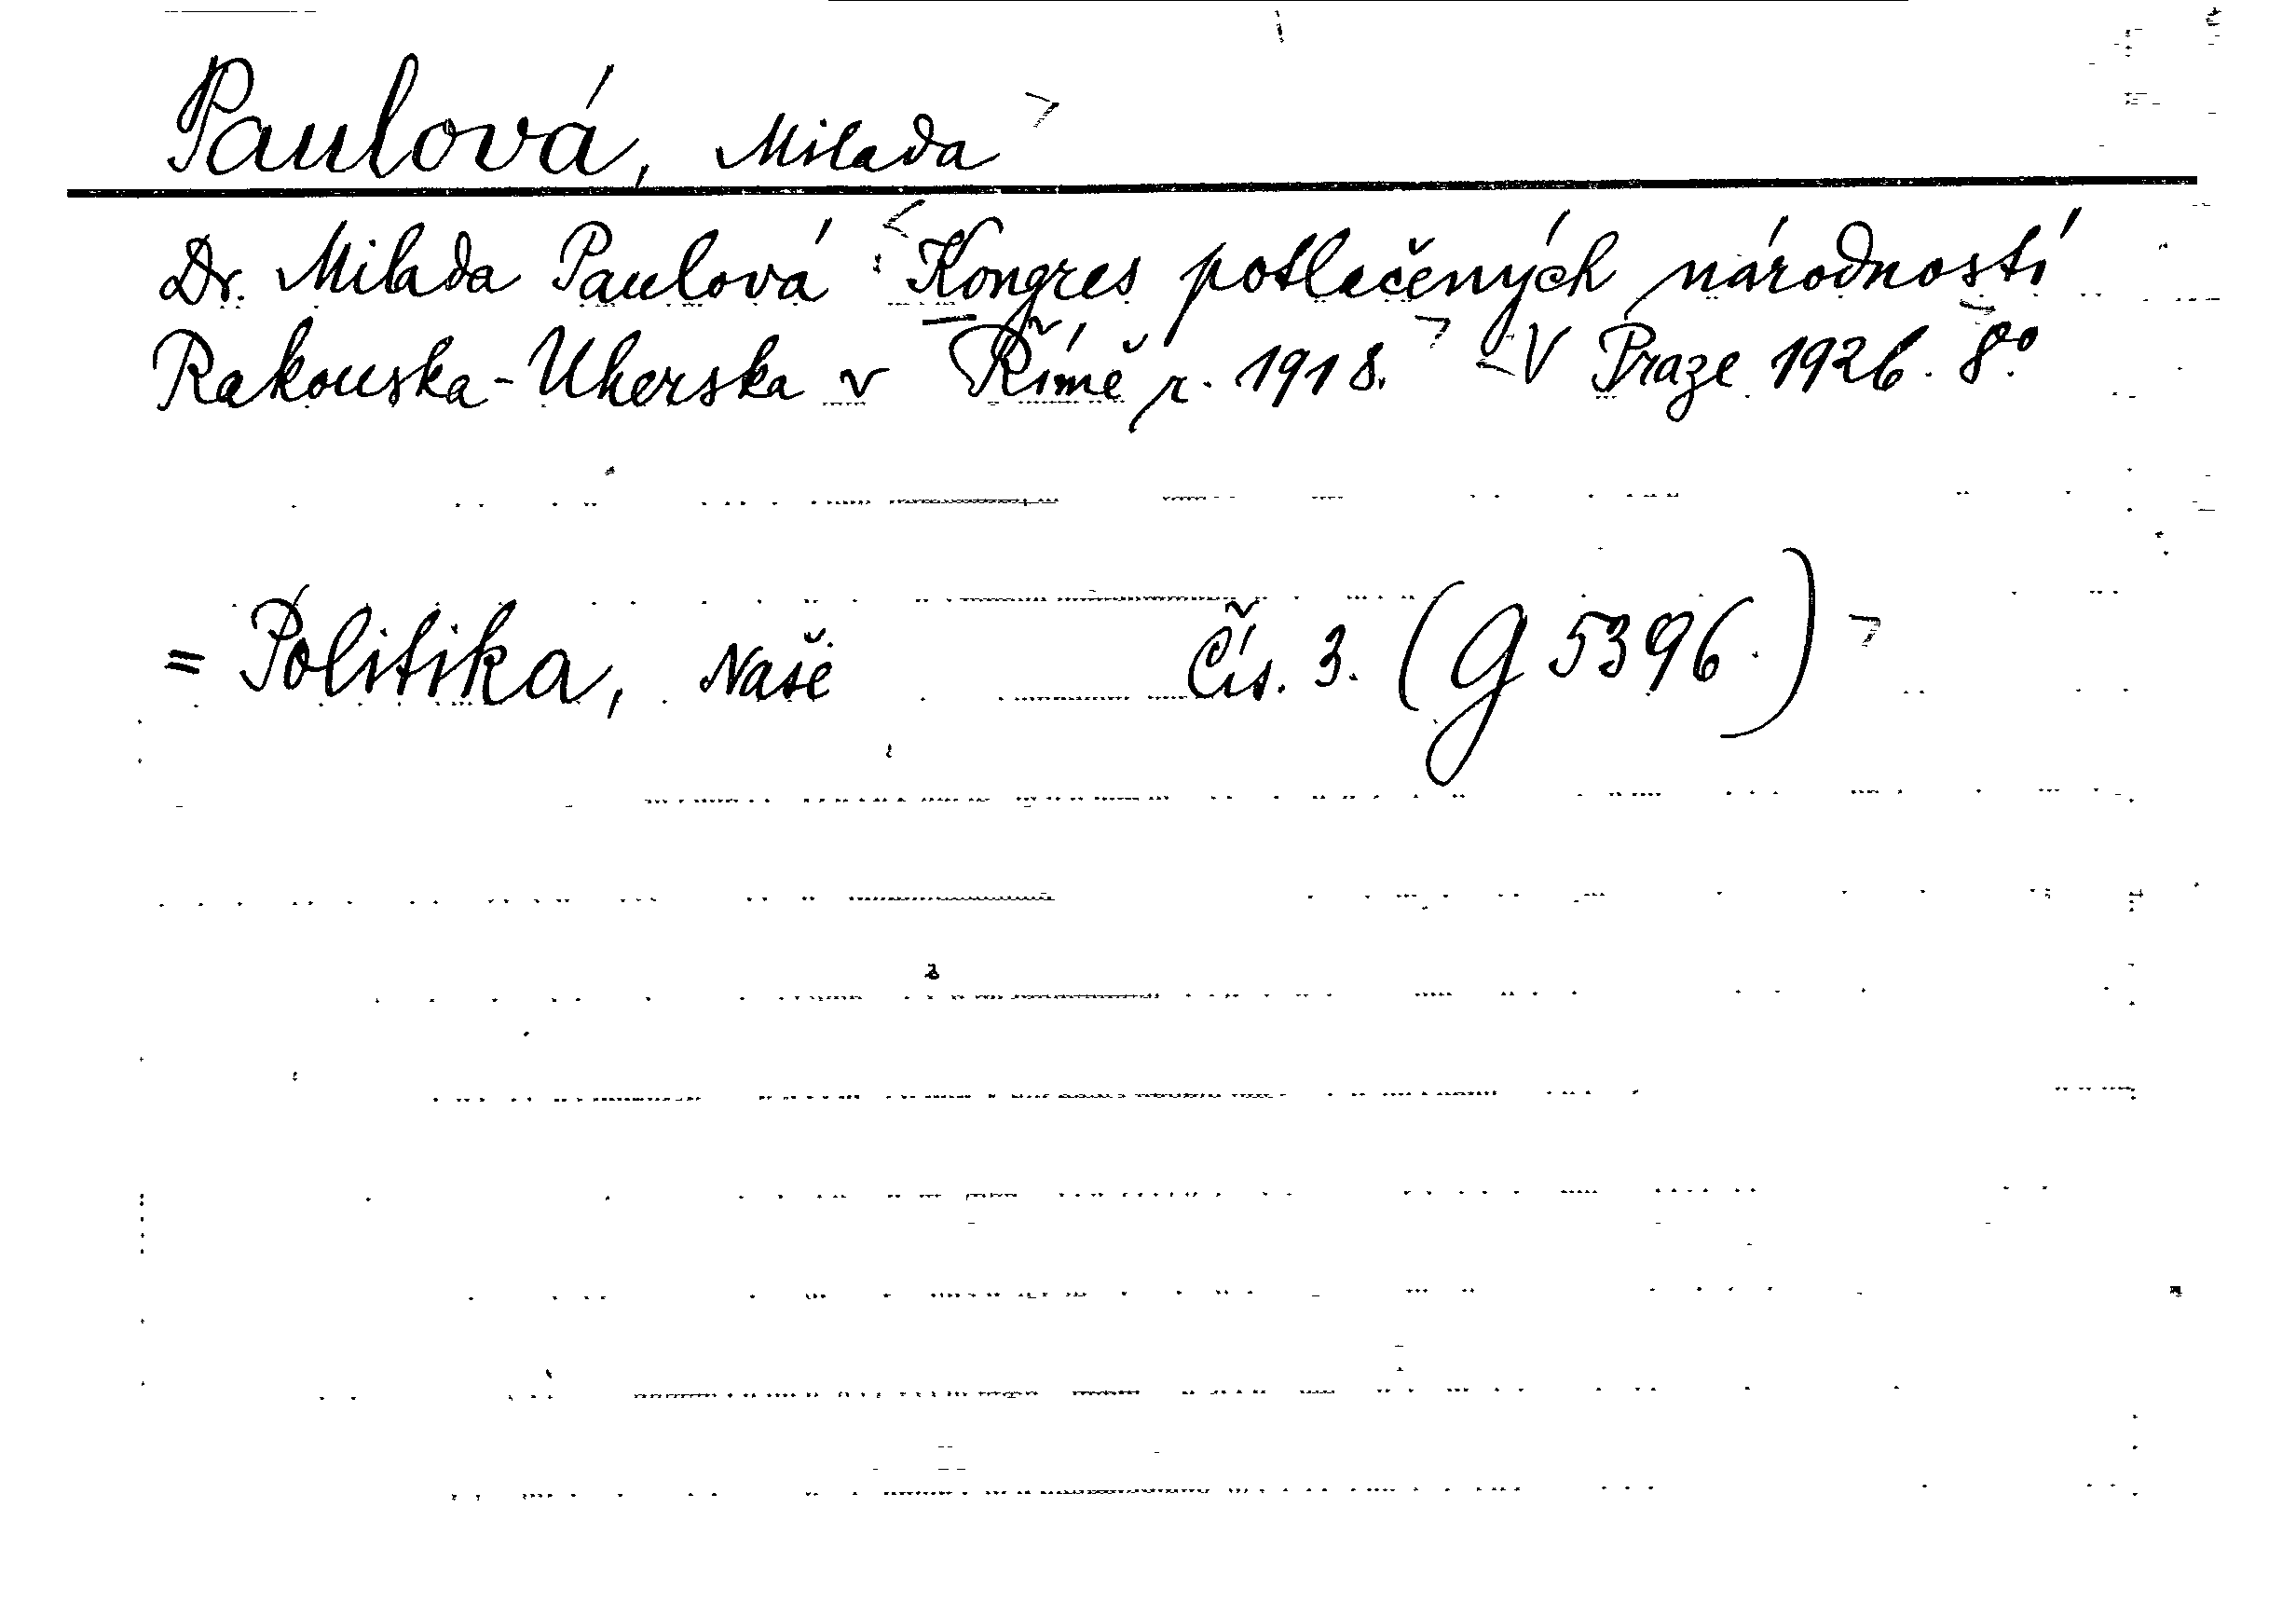 Paulová, Milada
Dr. Milada Paulová: Kongres potlačených národností
Rakouska-Uherska v Římě r. 1918. V Praze 1926. 8°.
= Politika, Naše Čís. 3. (G 5396.)